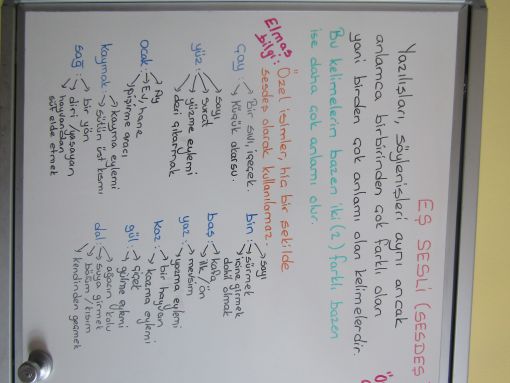 EŞ SESLİ (SESDEŞ
Yazılışları, söylenişleri aynı ancak
anlamca birbirinden çok farklı olan
yani birden çok anlamı olan kelimelerdir.
Bu kelimelerin bazen iki (2) farklı bazen
ise daha çok anlamı olur.
Elmas bilgi: Özel isimler, hiç bir şekilde
sesdeş olarak kullanılamaz.
Çay: Bir sıvı, içecek.
Küçük akarsu.
yüz: sayı
surat
yüzme eylemi
deri çıkartmak
Ocak: Ay
Ev, hane
pişirme aracı
kaymak: kayma eylemi
sütün üst kısmı
sağ: bir yön
diri / yaşayan
hayvandan
süt elde etmek
bin: sayı
sürmek
içine girmek
dahil olmak
baş: kafa
ilk / ön
yaz: mevsim
yazma eylemi
kaz: bir hayvan
kazma eylemi
gül: çiçek
gülme eylemi
dal: ağacın kolu
suya girmek
bölüm / kısım
kendinden geçmek